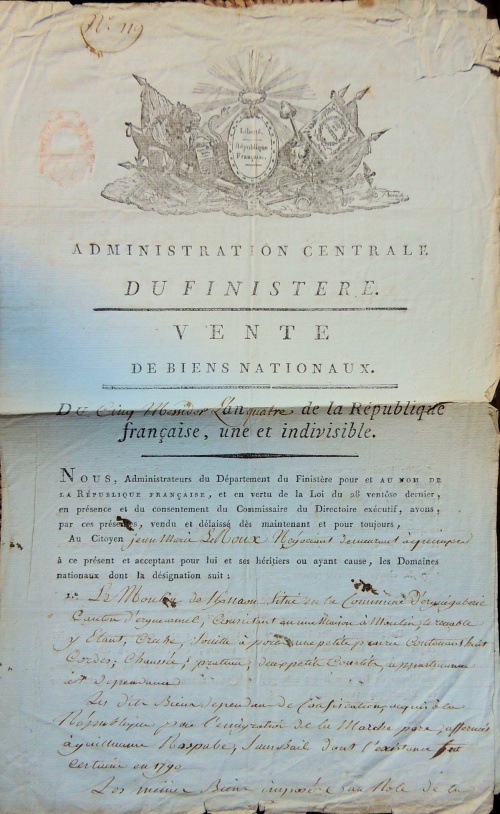 N.° 119
Liberté.
République
Française.
ADMINISTRATION CENTRALE
DU FINISTERE.
VENTE
DE BIENS NATIONAUX.
DU Cinq Messidor L'an quatre de la République
française, une et indivisible.
NOUS, Administrateurs du Département du Finistère pour et AU NOM DE
LA RÉPUBLIQUE FRANÇAISE, et en vertu de la Loi du 28 ventôse dernier,
en présence et du consentement du Commissaire du Directoire exécutif, avons,
par ces présentes, vendu et délaissé dès maintenant et pour toujours,
Au Citoyen jean Marie LeRoux Négociant demeurant à quimper
à ce présent et acceptant pour lui et ses héritiers ou ayant cause, les Domaines
nationaux dont la désignation suit :
1.° Le Moulin de Situé en la Commune D'ergué
Canton D' Consistant en une Maison à Moulin, le
y Étant, Creche, à porc, une petite prairie Contenant huit
Cordes, Chaussée, deux petits Courtils, appartenances
et dependances
Les dits Biens dependan de Confiscation à la
Republique pour l'emigration de la Marche pere, affermés
à guillaume Rospabe, Sans Bail dont l'existence soit
Certaine en 1790
Les mêmes Biens imposés au Role de la